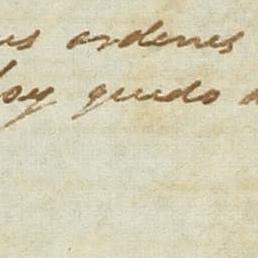 us ordenes
hoy quedo